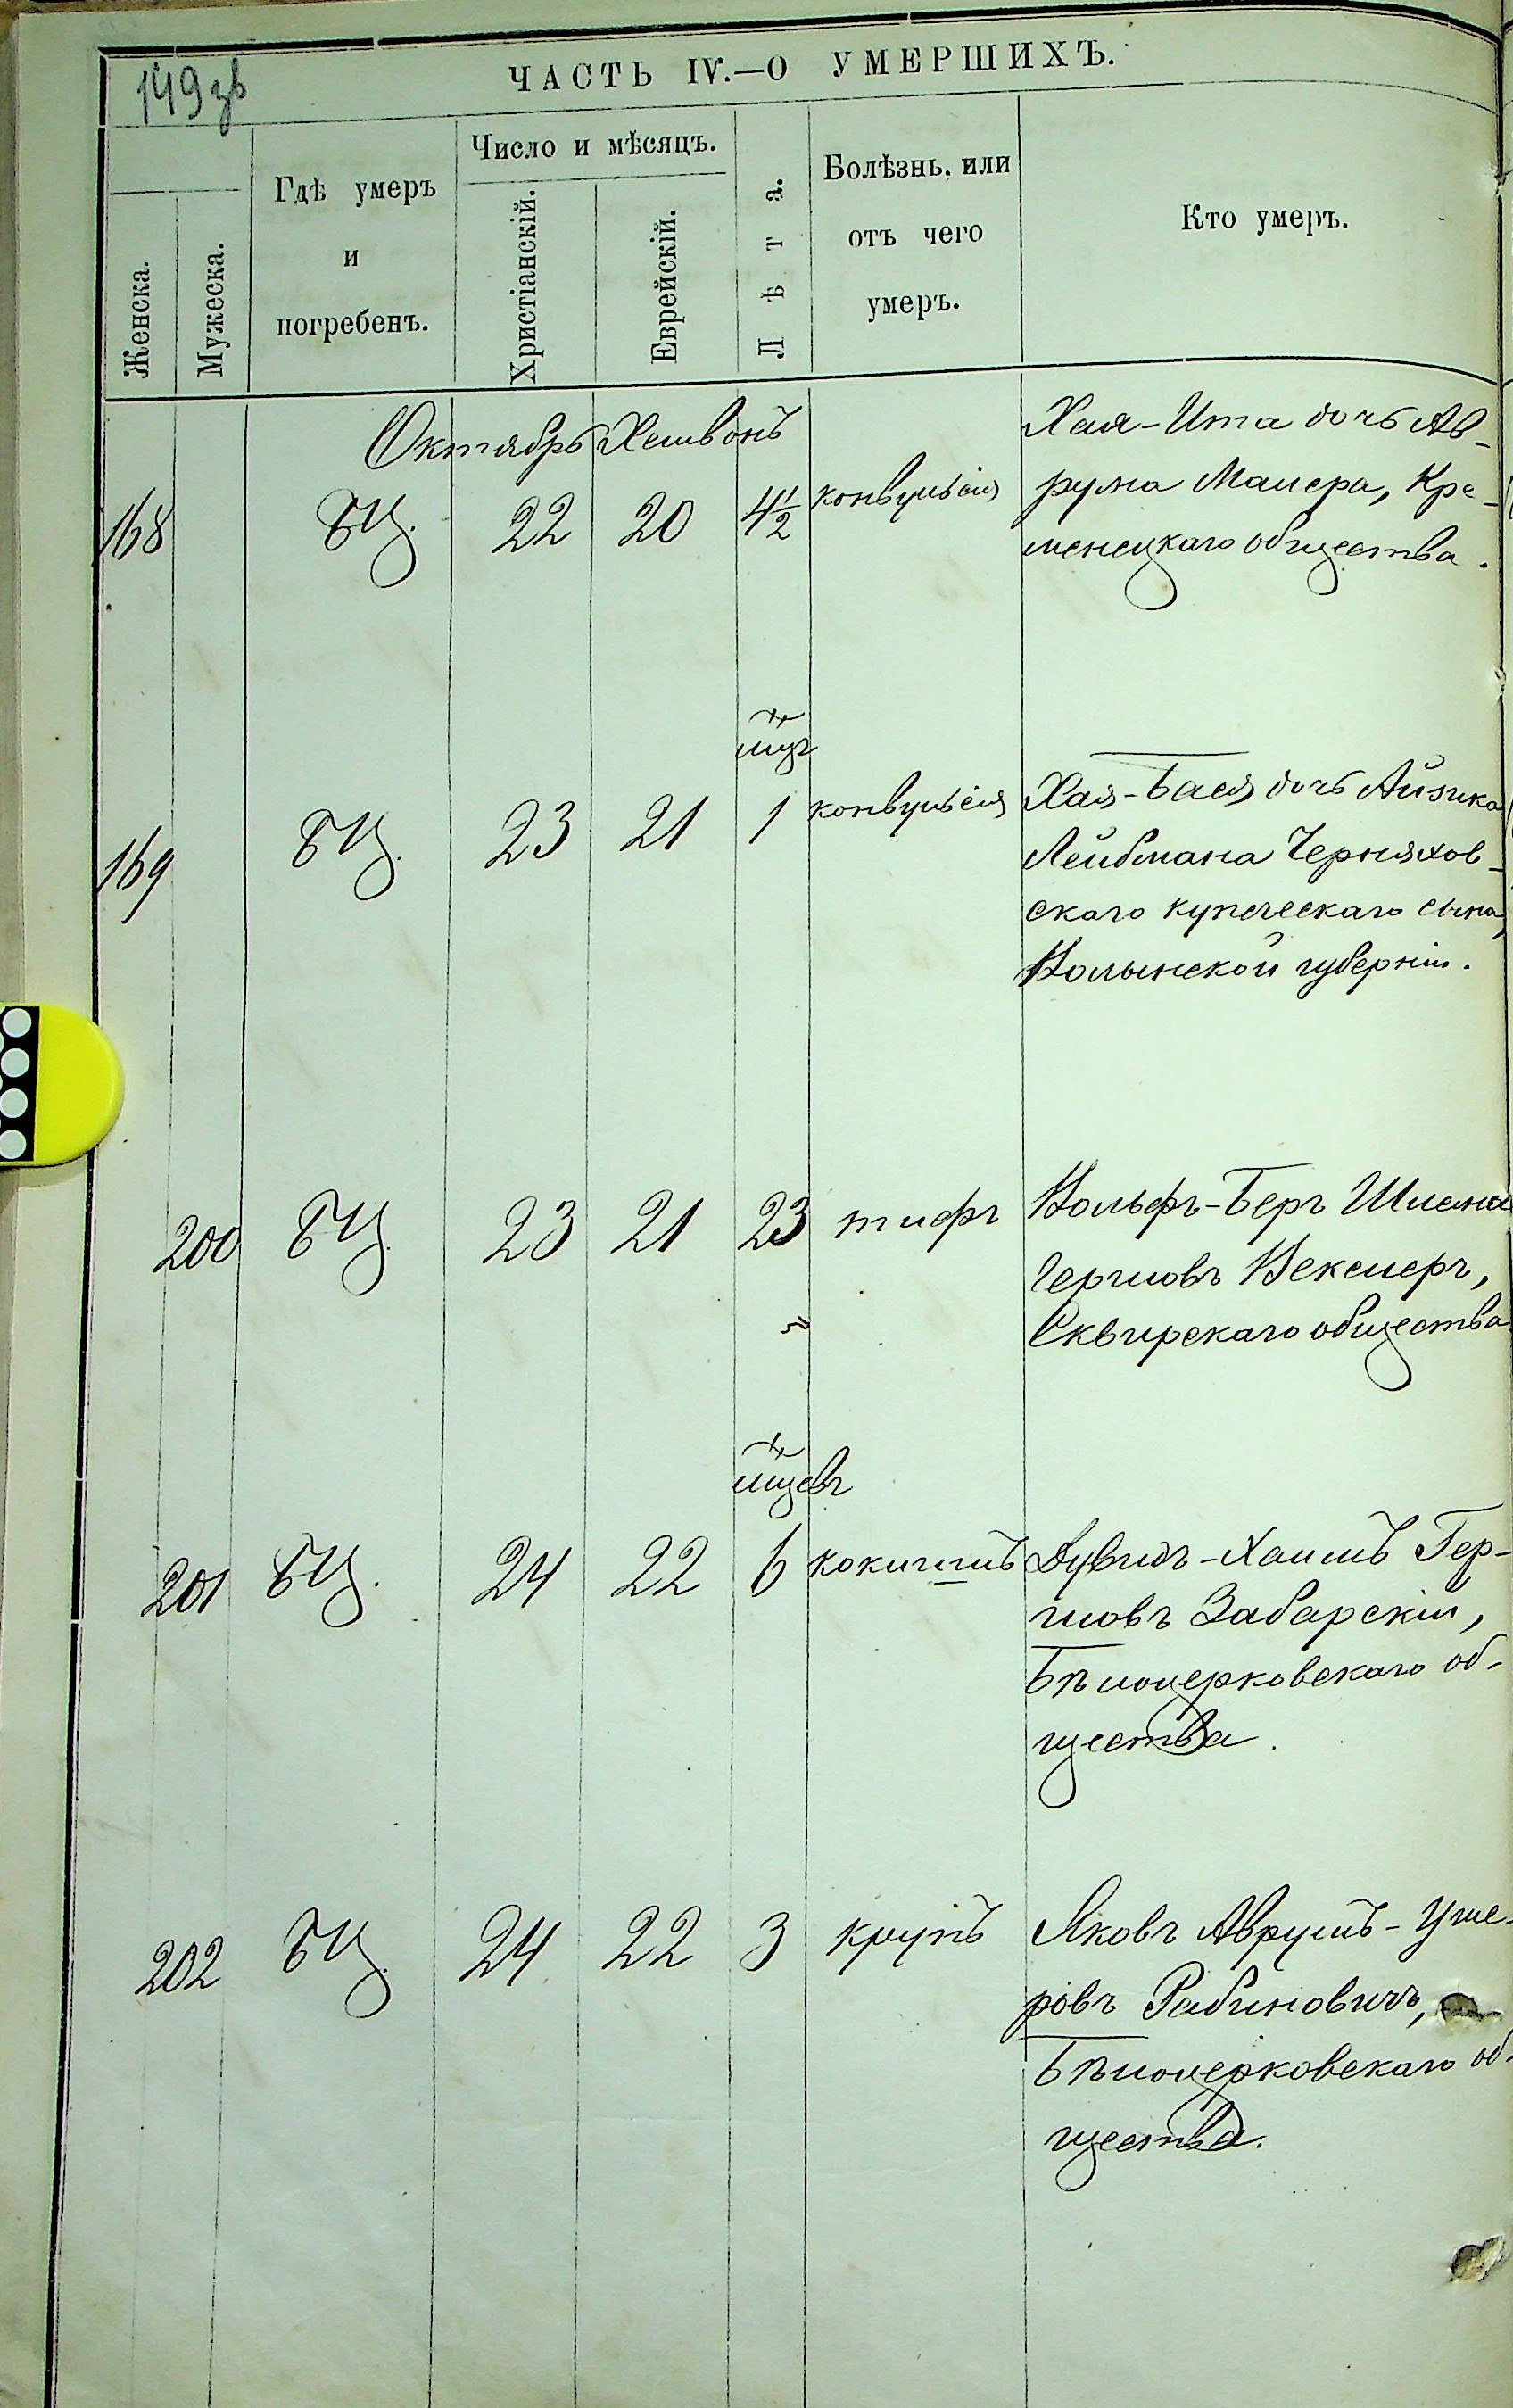 149 зв
ЧАСТЬ IV.—О УМЕРШИХЪ.
Женска.
Мужеска.
Гдѣ умеръ
и
погребенъ.
Число и мѣсяцъ.
Христіанскій.
Еврейскій.
Лѣта.
Болѣзнь, или
отъ чего
умеръ.
Кто умеръ.
Октябрь Хешвонъ
168 БЦ. 22 20 4½ конвульсія
Хая-Ита дочь Ав-
рума Малера, Кре-
менецкаго общества.
мцъ
169 БЦ. 23 21 1 конвульсія
Хая-Бася дочь Айзика
Лейбмана Черняхов-
скаго купеческаго сына,
Волынской губерніи.
200 БЦ. 23 21 23 тифъ
Вольфъ-Беръ Шлема
Гершовъ Векслеръ,
Сквирскаго общества.
мцевъ
201 БЦ. 24 22 6 коклишъ
Дувидъ-Хаимъ Гер-
шовъ Забарскій,
Бѣлоцерковскаго об-
щества.
202 БЦ. 24 22 3 крупъ
Яковъ Аврумъ-Уше-
ровъ Рабиновичъ,
Бѣлоцерковскаго об-
щества.